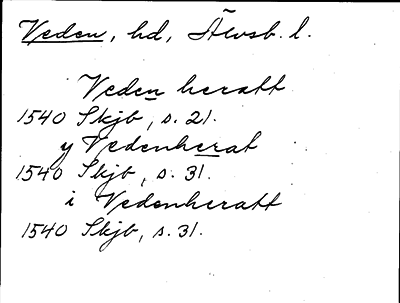 Veden, hd, Älvsb. l.
Veden heratt
1540 Skjb, s. 21.
y Vedenherat
1540 Skjb, s. 31.
i Vedenheratt
1540 Skjb, s. 31.